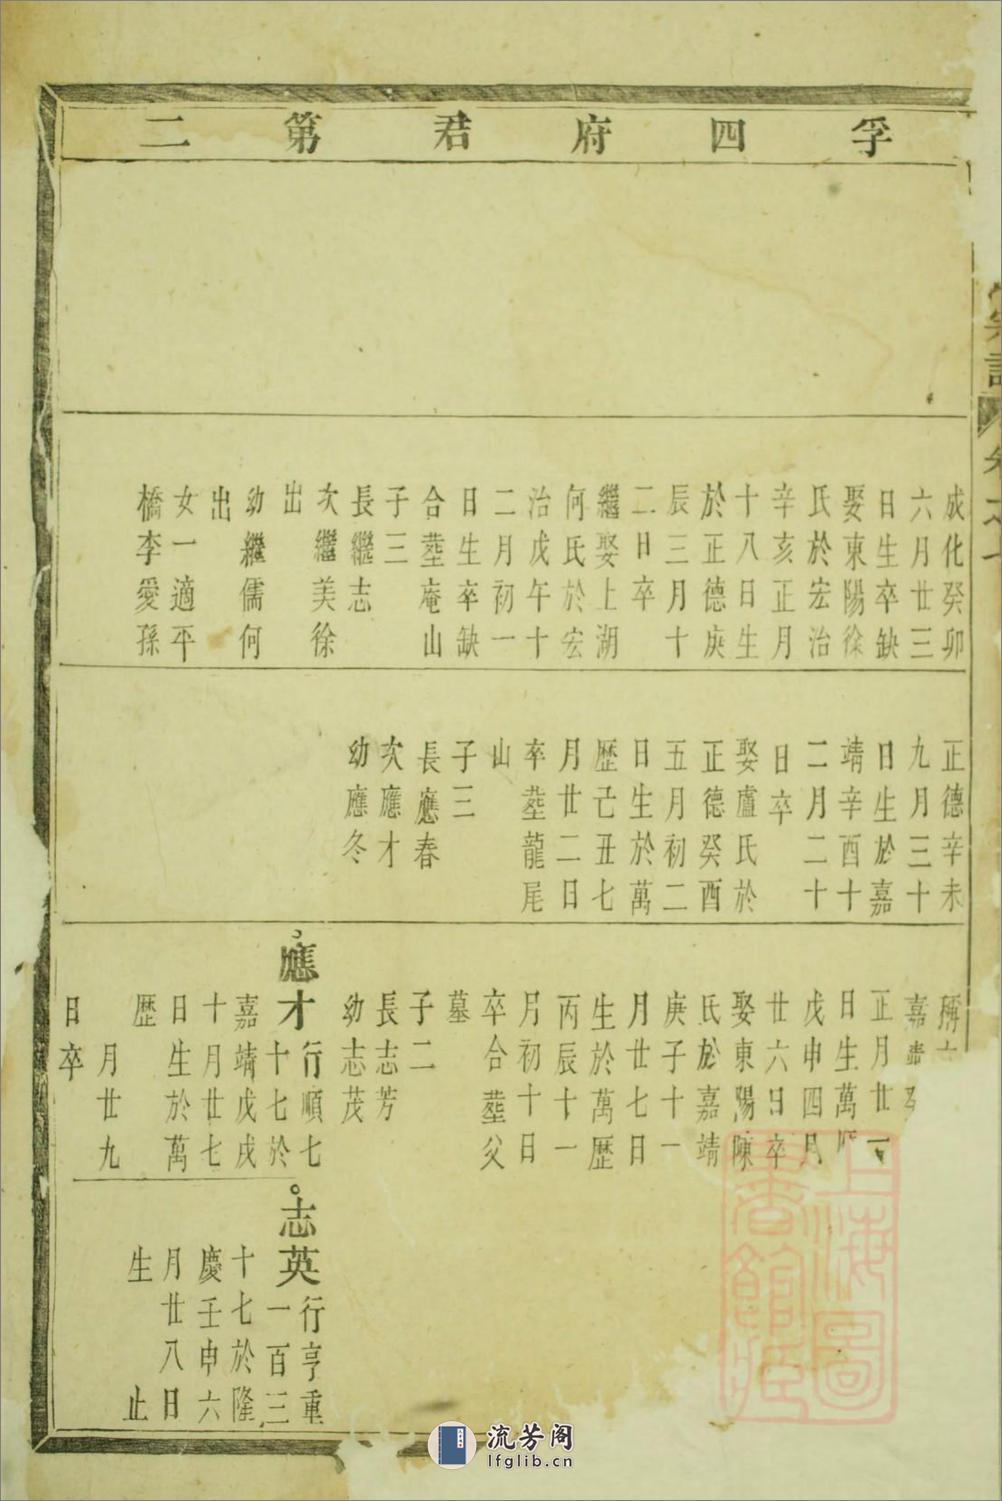 孚四府君第二
成化癸卯
六月廿三
日生卒缺
娶東陽徐
氏於宏治
辛亥正月
十八日生
於正德庚
辰三月十
二日卒
繼娶上湖
何氏於宏
治戊午十
二月初一
日生卒缺
合塟庵山
子三
長繼志
次繼美徐
出
幼繼儒何
出
女一適平
橋李愛孫
正德辛未
九月三十
日生於嘉
靖辛酉十
二月二十
日卒
娶盧氏於
正德癸酉
五月初二
日生於萬
歷己丑七
月廿二日
卒塟龍尾
山
子三
長應春
次應才
幼應冬
嘉
正月廿
日生萬
戊申四月
廿六日卒
娶東陽陳
氏於嘉靖
庚子十一
月廿七日
生於萬歷
丙辰十一
月初十日
卒合塟父
墓
子二
長志芳
幼志茂
應才
行順七
十七於
嘉靖戊戌
十月廿七
日生於萬
歷
月廿九
日卒
志英
行亨重
一百三
十七於隆
慶壬申六
月廿八日
生 止
上海圖
書館藏
流芳阁
lfglib.cn